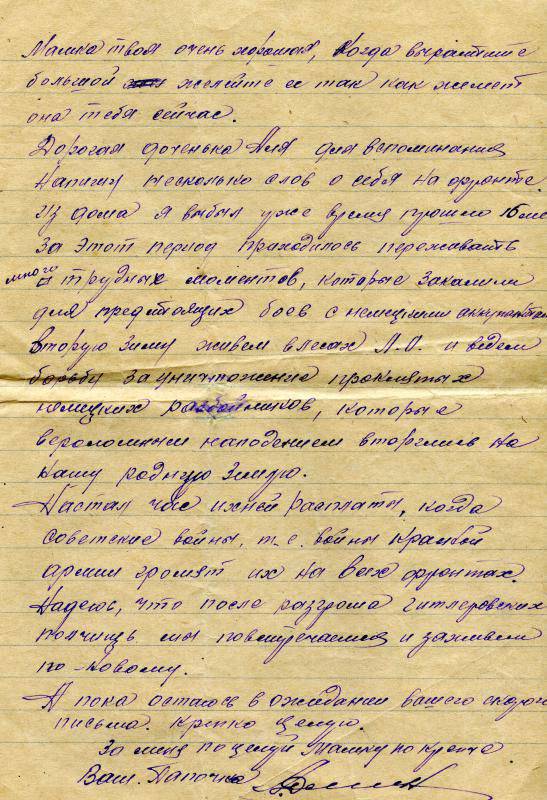 Мамка твоя очень хорошая, когда вырастише
большой жалейте ее так как жалеет
она тебя сейчас.
Дорогая доченька Аля для вспоминания
напишу несколько слов о себя на фронте.
Из дома я выбыл уже время прошло 16 мес
За этот период приходилось переживать
много трудных моментов, которые закалили
для предстоящих боев с немецкими аккупантам
Вторую зиму живем в лесах Л.О. и ведем
борьбу за уничтожение проклятых
немецких разбойников, которые
вероломным нападением вторглись на
нашу родную Землю.
Настал час ихней расплаты, когда
советские войны, т.е. войны Красной
армии громят их на всех фронтах.
Надеюсь, что после разгрома гитлеровских
полчищь мы повстречаемся и заживем
по-новому.
А пока остаюсь в ожидании вашего скорого
письма. Крепко целую.
За меня поцелуй Мамку по крепче
Ваш. Папочка